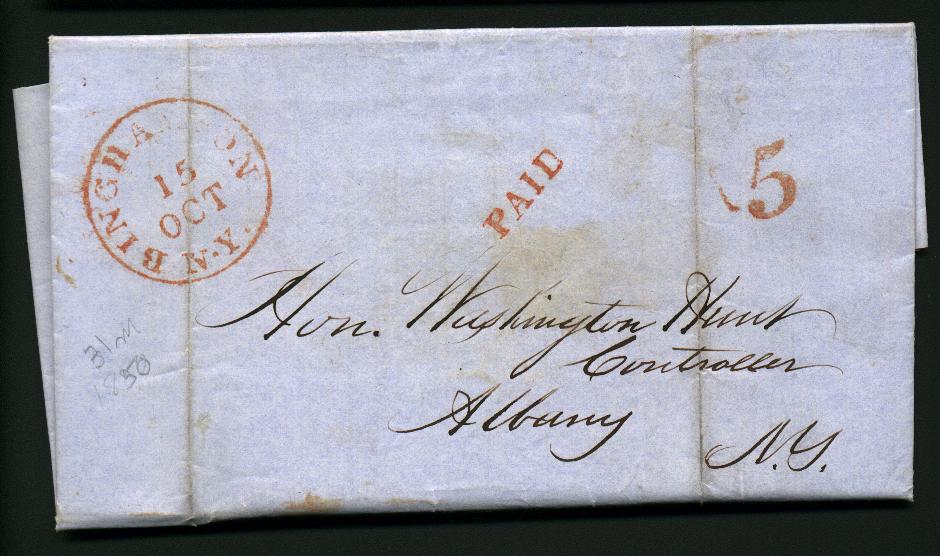 BINGHAMTON N.Y.
15
OCT
PAID
5
Hon. Washington Hunt
Controller
Albany
N.Y.
1850